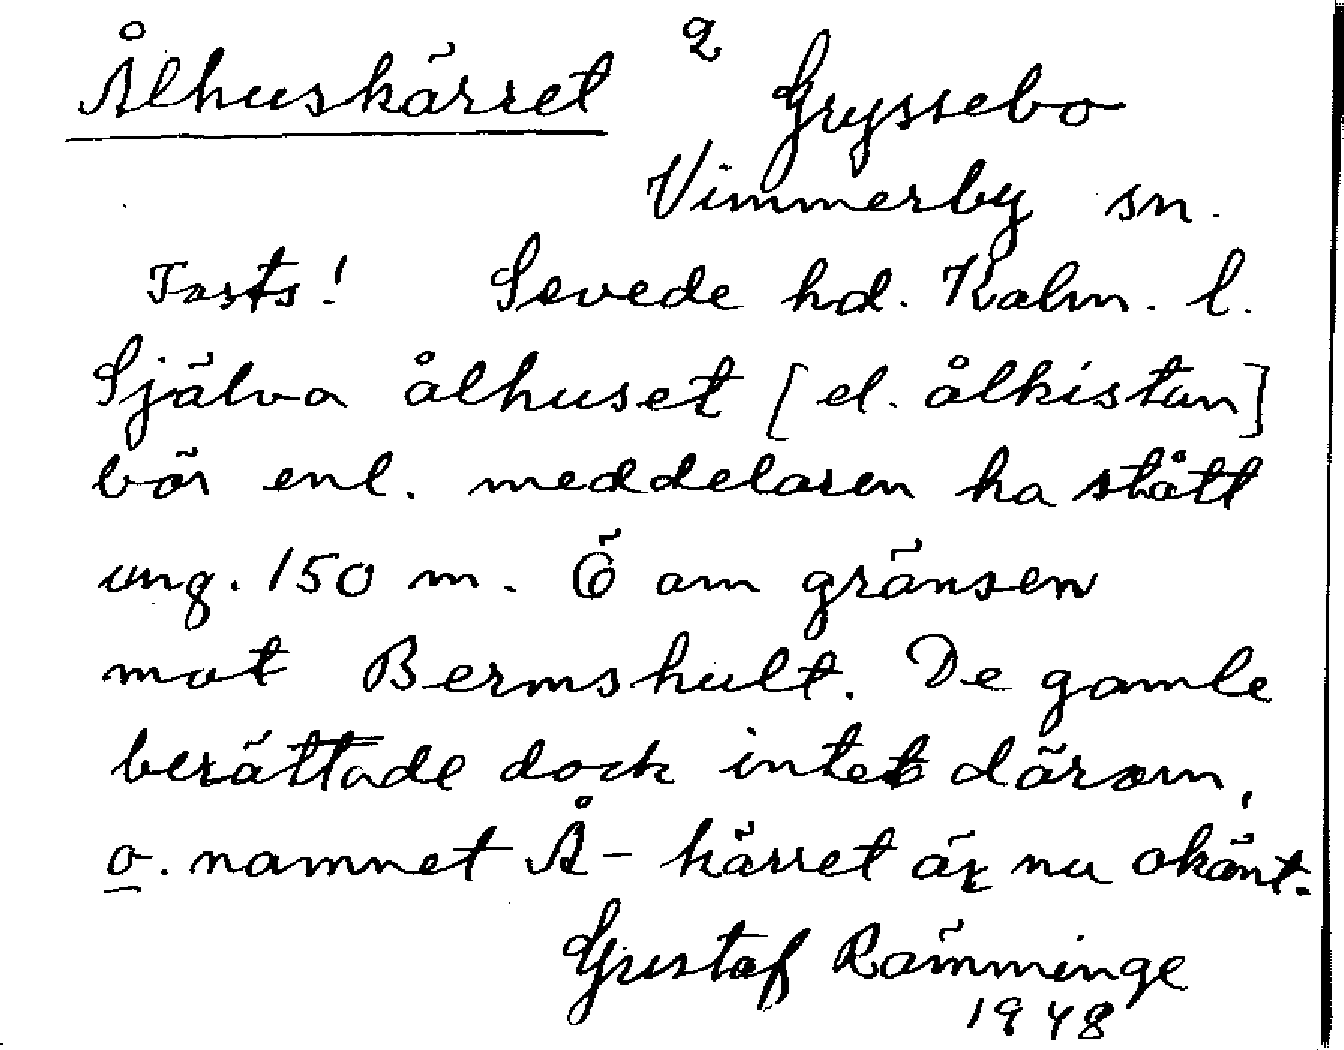 Ålhuskärret 2 Gryssebo
Vimmerby sn.
Tasts! Sevede hd. Kalm. l.
Själva ålhuset [el. ålkistan]
bör enl. meddelaren ha stått
ung. 150 m. Ö om gränsen
mot Bermshult. De gamle
berättade dock intet därom,
o. namnet Å-kärret är nu okänt.
Gustaf Rämminge
1948